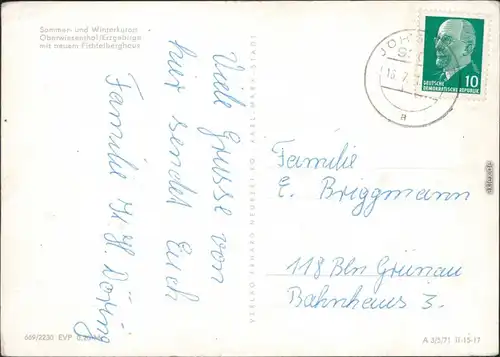 Sommer- und Winterkurort
Oberwiesenthal/Erzgebirge
mit neuem Fichtelberghaus
Viele Grüsse von
hier sendet Euch
Familie H. Döring
VERLAG ERHARD NEUBERT KG KARL-MARX-STADT
669/2230 EVP
JOH
16. 7.
a
DEUTSCHE
DEMOKRATISCHE REPUBLIK
10
Familie
E. Briggmann
118 Bln Grünau
Bahnhaus 3.
A 3/5/71 II-15-17